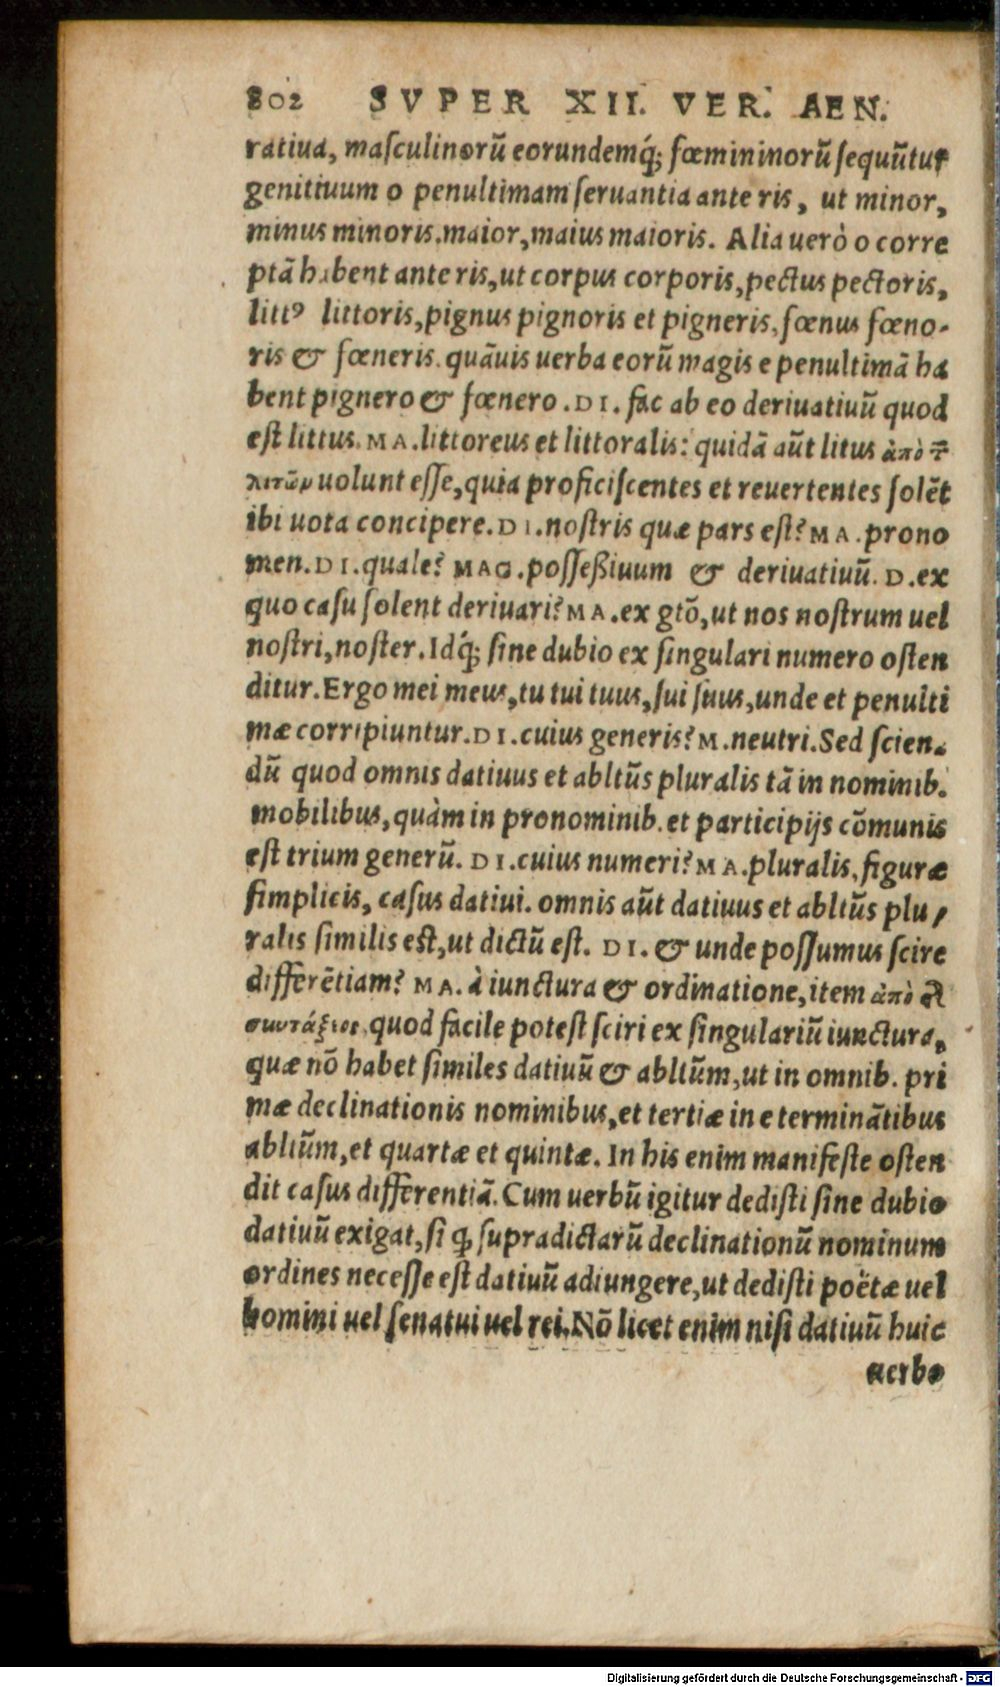 802 SVPER XII. VER. AEN.
ratiua, maſculinorũ eorundemq́; fœmininorũ ſequũtur
genitiuum o penultimam ſeruantia ante ris, ut minor,
minus minoris.maior,maius maioris. Alia uerò o corre
ptã habent ante ris,ut corpus corporis,pectus pectoris,
littꝰ littoris,pignus pignoris et pigneris,fœnus fœno-
ris & fœneris. quãuis uerba eorũ magis e penultimã ha
bent pignero & fœnero.DI. fac ab eo deriuatiuũ quod
eſt littus.MA.littoreus et littoralis: quidã aũt litus ἀπὸ τ͂
λιτῶν uolunt eſſe,quia proficiſcentes et reuertentes ſolẽt
ibi uota concipere.DI.noſtris quæ pars eſt?MA.prono
men.DI.quale? MAG.poſſeßiuum & deriuatiuũ.D.ex
quo caſu ſolent deriuari?MA.ex gtõ,ut nos noſtrum uel
noſtri,noſter.Idq́; ſine dubio ex ſingulari numero oſten
ditur.Ergo mei meus,tu tui tuus,ſui ſuus,unde et penulti
mæ corripiuntur.DI.cuius generis?M.neutri.Sed ſcien-
dũ quod omnis datiuus et abltũs pluralis tã in nominib.
mobilibus,quàm in pronominib.et participijs cõmunis
eſt trium generũ. DI.cuius numeri?MA.pluralis,figuræ
ſimplicis, caſus datiui. omnis aũt datiuus et abltũs plu-
ralis ſimilis eſt,ut dictũ eſt. DI. & unde poſſumus ſcire
differẽtiam? MA.à iunctura & ordinatione,item ἀπὸ τ͂
συντάξεος,quod facile poteſt ſciri ex ſingulariũ iunctura,
quæ nõ habet ſimiles datiuũ & abltũm,ut in omnib. pri
mæ declinationis nominibus,et tertiæ in e terminãtibus
abltũm,et quartæ et quintæ. In his enim manifeſte oſten
dit caſus differentiã. Cum uerbũ igitur dediſti ſine dubio
datiuũ exigat,ſi ꝗ ſupradictarũ declinationũ nominum
ordines neceſſe eſt datiuũ adiungere,ut dediſti poëtæ uel
homini uel ſenatui uel rei.Nõ licet enim niſi datiuũ huic
uerbo
Digitalisierung gefördert durch die Deutsche Forschungsgemeinschaft - DFG